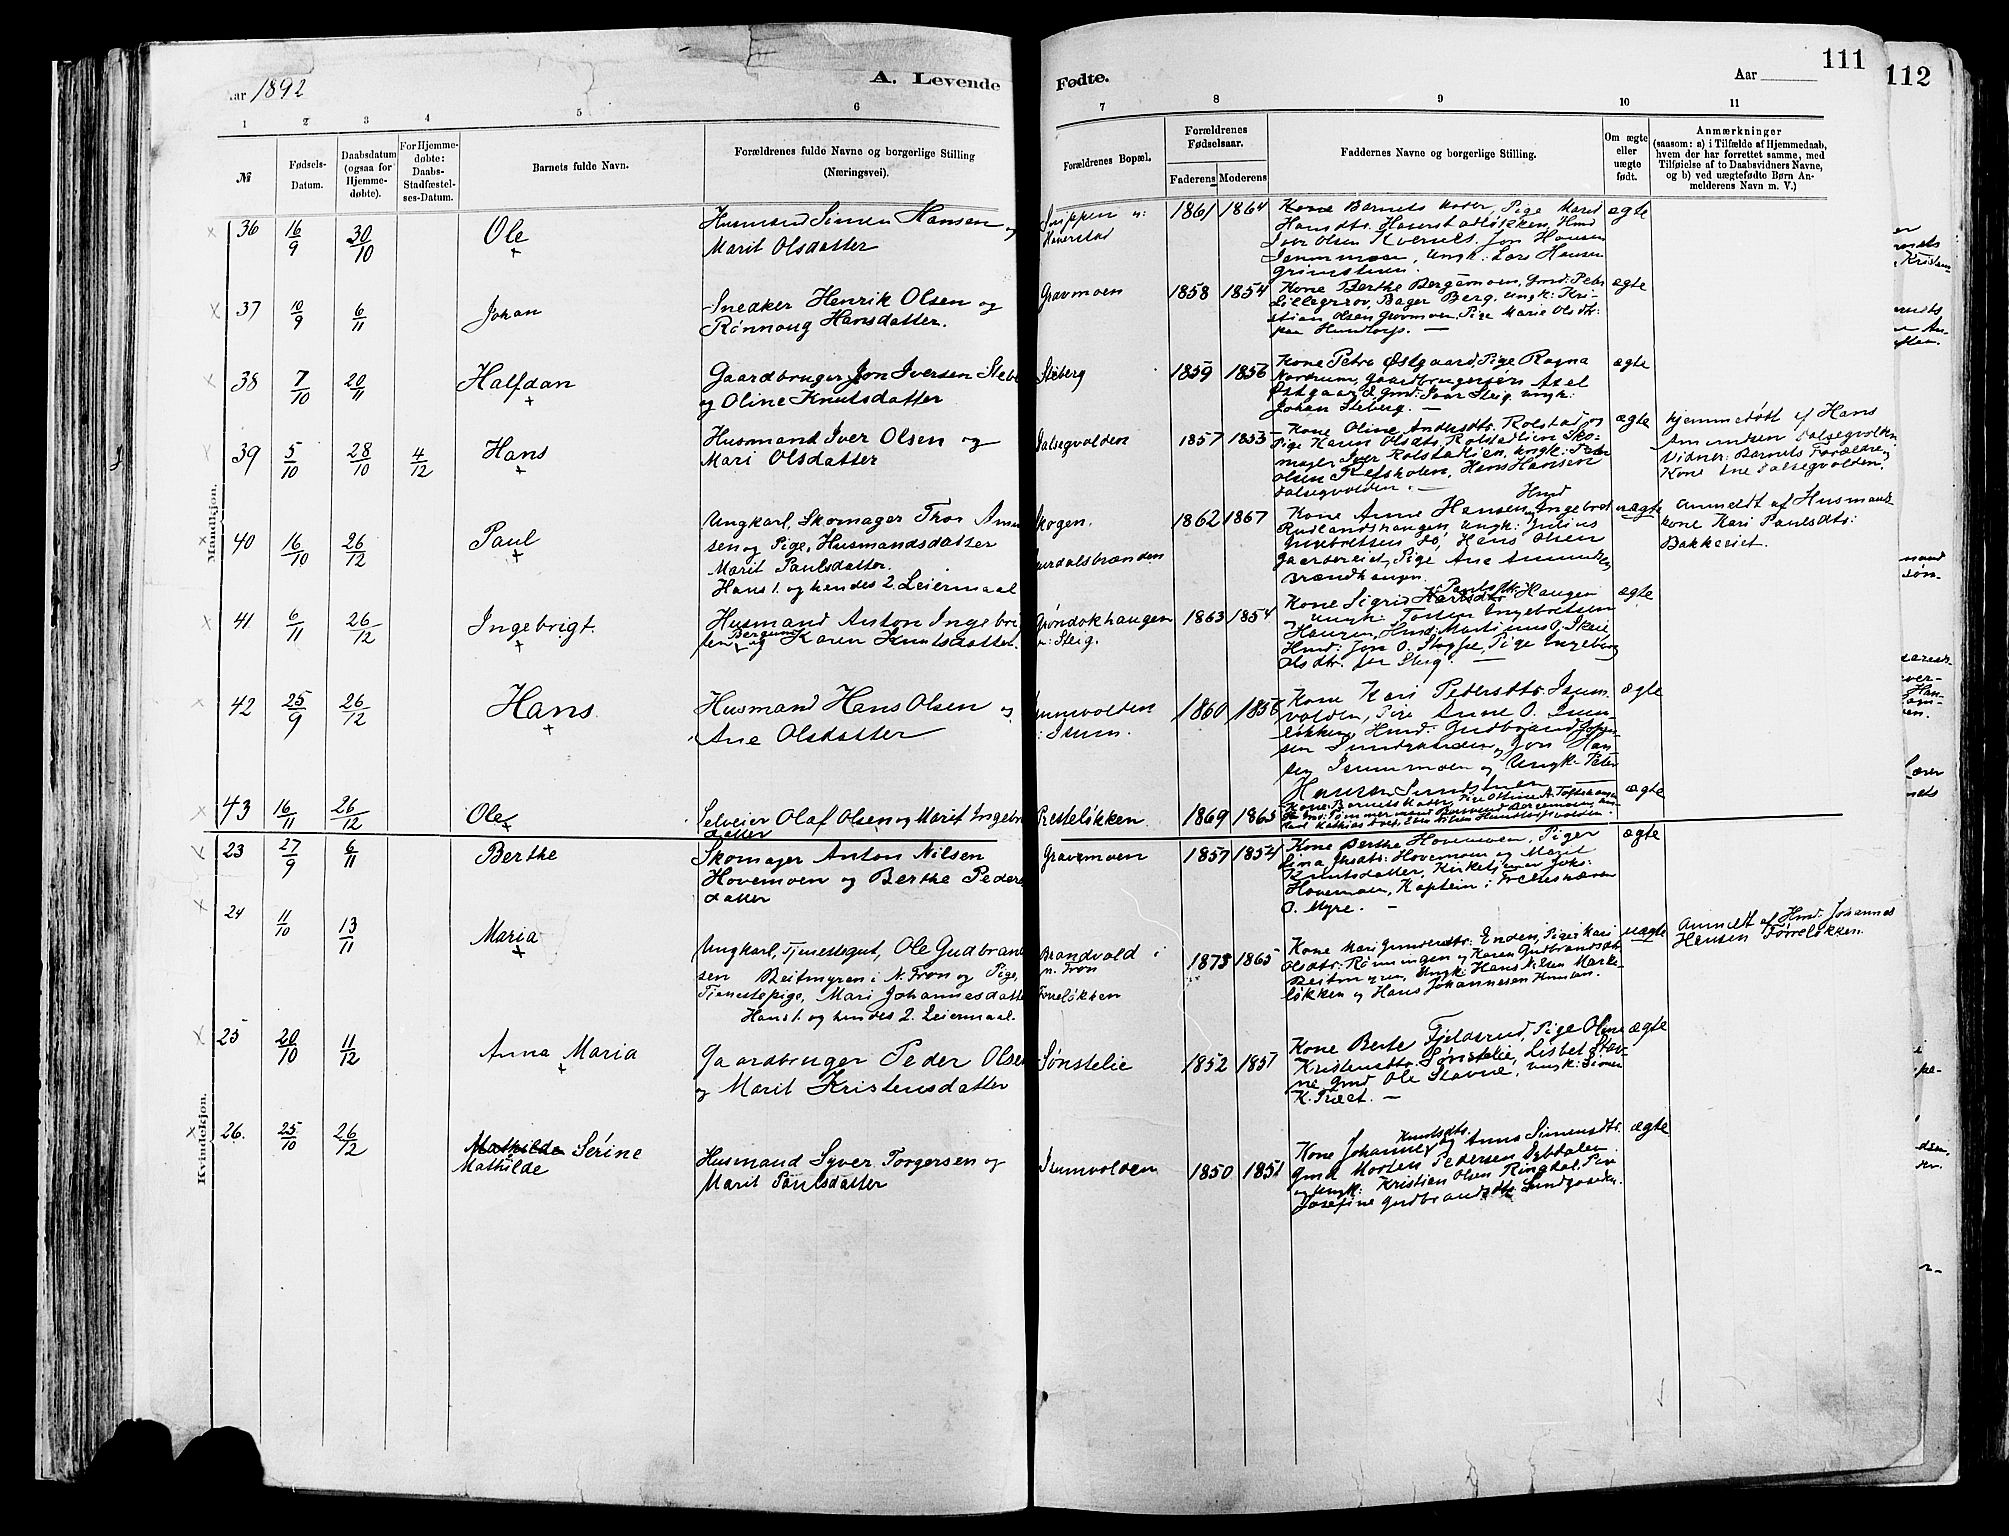 Aar 1892
A. Levende
Fødte.
Aar
111
112
1 2 3 4 5 6 7 8 9 10 11
№
Fødsels-Datum.
Daabsdatum (ogsaa for Hjemmedøbte).
For Hjemmedøbte: Daabs-Stadfæstelses-Datum.
Barnets fulde Navn.
Forældrenes fulde Navne og borgerlige Stilling
(Næringsvei).
Forældrenes Bopæl.
Forældrenes Fødselsaar.
Faderens Moderens
Faddernes Navne og borgerlige Stilling.
Om ægte eller uægte født.
Anmærkninger
(saasom: a) i Tilfælde af Hjemmedaab,
hvem der har forrettet samme, med
Tilføielse af to Daabsvidners Navne,
og b) ved uægtefødte Børn Anmelderens Navn m. V.)
Mandkjøn.
36 16/9 30/10 Ole
Husmand Simen Hansen og
Marit Olsdatter
Haverstad
1861 1864
Kone Barnets Moder, Pige Marit
Hansdtr. Haverstadløkken, Hmd
Iver Olsen Kvernes, Jon Hansen
Isummoen, Ungk. Lars Hansen
ægte
37 10/9 6/11 Johan
Snedker Henrik Olsen og
Rønnoug Hansdatter.
Gravmoen
1858 1854
Kone Berthe Bergemoen, Gmd: Peder
Lillegaard, Bager Berg, Ungk: Kristian
Olsen Gravmoen, Pige Marie Olsdtr.
paa Hundtorp. —
ægte
38 7/10 20/11 Halfdan
Gaardbruger Jon Iversen Steberg
og Oline Knutsdatter
Steberg
1859 1856
Kone Petra Østgaard, Pige Ragna
Nordrum, Gaardbrugersøn Axel
Østgaard, Gmd: Ivar Steig, Ungk:
Johan Steberg. —
ægte
39 5/10 28/10 4/12 Hans
Husmand Iver Olsen og
Mari Olsdatter
Dalsegvolden
1857 1853
Kone Oline Andersdtr. Rolstad og
Pige Karen Olsdtr. Rolstadlien, Skomager
Iver Rolstadlien, Ungk: Peder
Olsen Refsholen, Hans Hansen
Dalsegvolden. —
ægte
Hjemmedøbt af Hans
Amundsen Dalsegvolden.
Vidner: Barnets Forældre og
Kone Ane Dalsegvolden.
40 16/10 26/12 Paul
Ungkarl, Skomager Thor Amundsen
og Pige, Husmandsdatter
Marit Paulsdatter.
Hans 1. og hendes 2. Leiermaal
Skogen.
1862 1867
Kone Anne Hansen, Hmd Ingebret
Rudlandshaugen, Ungk: Julius
Hans Olsen
Pige Ane Amundsen
Brændhaugen.
uægte
Anmeldt af Husmands-
kone Kari Paulsdtr:
Bakkeriet.
41 6/11 26/12 Ingebrigt.
Husmand Anton Ingebrigtsen
Bergum og Karen Knutsdatter.
Grøndokhaugen
u: Steig.
1863 1854
Kone Sigrid Paulsdtr. Haugen
og Ungk: Torsten Ingebretsen
Haugen, Hmd: Martinus O. Skeie
Hmd: Jon O. Pige Ingeborg
Olsdtr. fra Steig. —
ægte
42 25/9 26/12 Hans
Husmand Hans Olsen og
Ane Olsdatter
Isumvolden
u: Isum.
1860 1856
Kone Kari Pedersdtr. Isum-
volden, Pige Anne O. Isum-
løkken, Hmd: Gudbrand Johan-
sen og Jon Han-
sen Isummoen og Ungk. Peter
Hansen
ægte
43 16/11 26/12 Ole
Selveier Olaf Olsen og Marit Ingebr.
datter
Presteløkken
1869 1865
Kone: Barnets Moder, Pige Oline A.
ægte
Kvindekjøn.
23 27/9 6/11 Berthe
Skomager Anton Nilsen
Hovemoen og Berthe Peders-
datter
Gravemoen
1857 1854
Kone Berthe Hovemoen, Piger
Lina Jensdtr. Hovemoen og Marit
Knutsdatter, Kirketjener Johs:
Hovemoen, Kaptein i Frelseshæren
O. Myre. —
ægte
24 11/10 13/11 Maria
Ungkarl, Tjenestegut, Ole Gudbrand-
sen Beitmyren i N. Fron og Pige,
Tjenestepige, Mari Johannesdatter
Hans 1. og hendes 2. Leiermaal.
Brandvold i
n. Fron
Førreløkken
1873 1865
Kone Mari Gunderdtr. Enden, Piger Kari
Olsdtr. Rønningen og Karen Gudbrandsdtr.
Beitmyren, Ungk: Hans Nilsen Marke-
løkken og Hans Johannesen
uægte
Anmeldt af Hmd. Johannes
Hansen Førreløkken.
25 20/10 11/12 Anna Maria
Gaardbruger Peder Olsen
og Marit Kristensdatter
Sønstelie
1852 1857
Kone Berte Fjeldsrud, Pige Oline
Kristensdtr. Sønstelie, Lisbet Stav-
ne Gmd Ole Stavne, Ungk: Simen
K. Præst. —
ægte
26. 25/10 26/12 Mathilde Serine
Mathilde
Husmand Syver Torgersen og
Marit Paulsdatter
Isumvolden
1850 1851
Kone Johanne Knutsdtr. og Anna Simensdtr.
Gmd Morten Pedersen Dybdalen
og Ungk: Kristian Olsen Ringdal, Pige
Josefine Gudbrandsdtr.
ægte